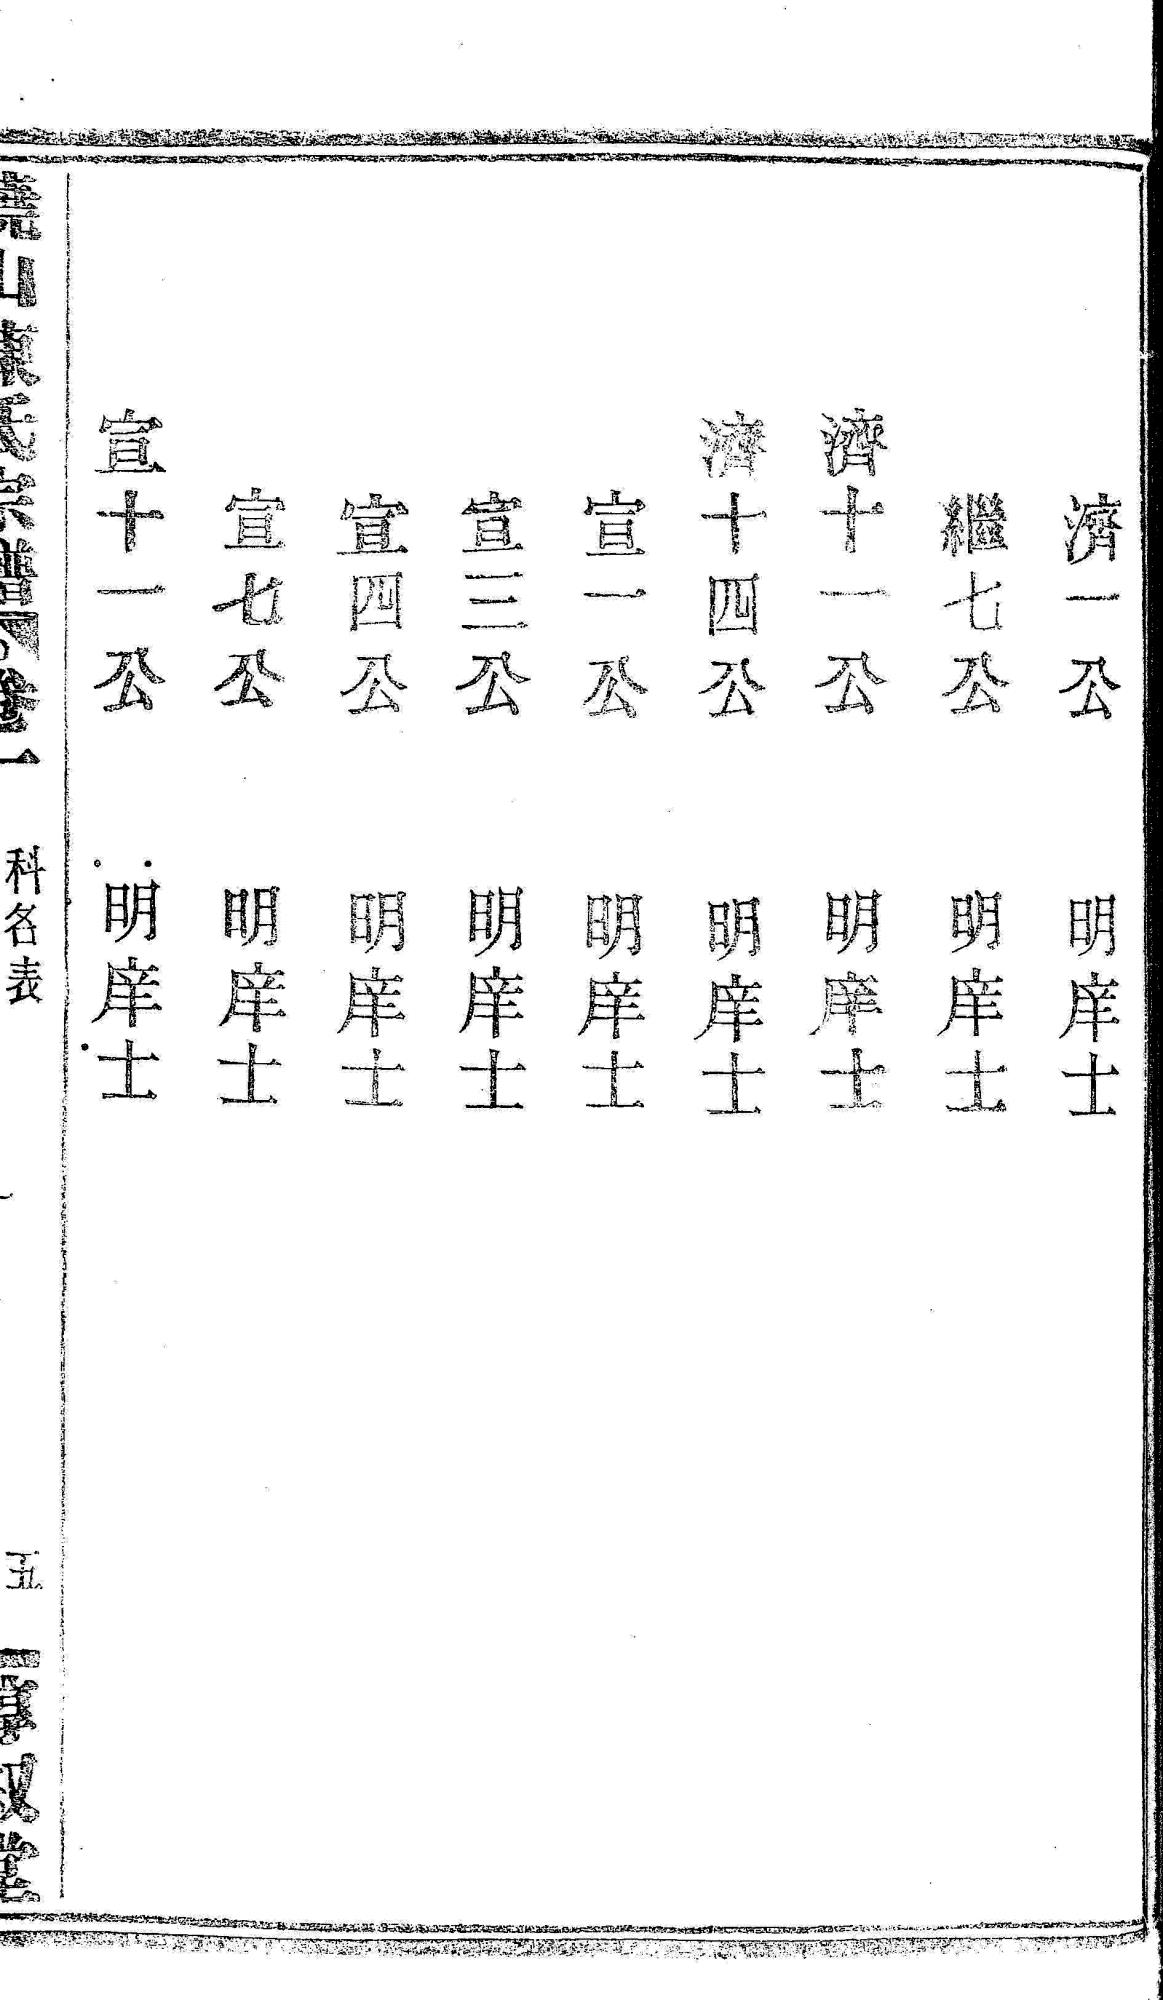 濟一公 明庠士
繼七公 明庠士
濟十一公 明庠士
濟十四公 明庠士
宣一公 明庠士
宣三公 明庠士
宣四公 明庠士
宣七公 明庠士
宣十一公 明庠士
山陳氏宗譜 卷一 科名表 五 敘堂